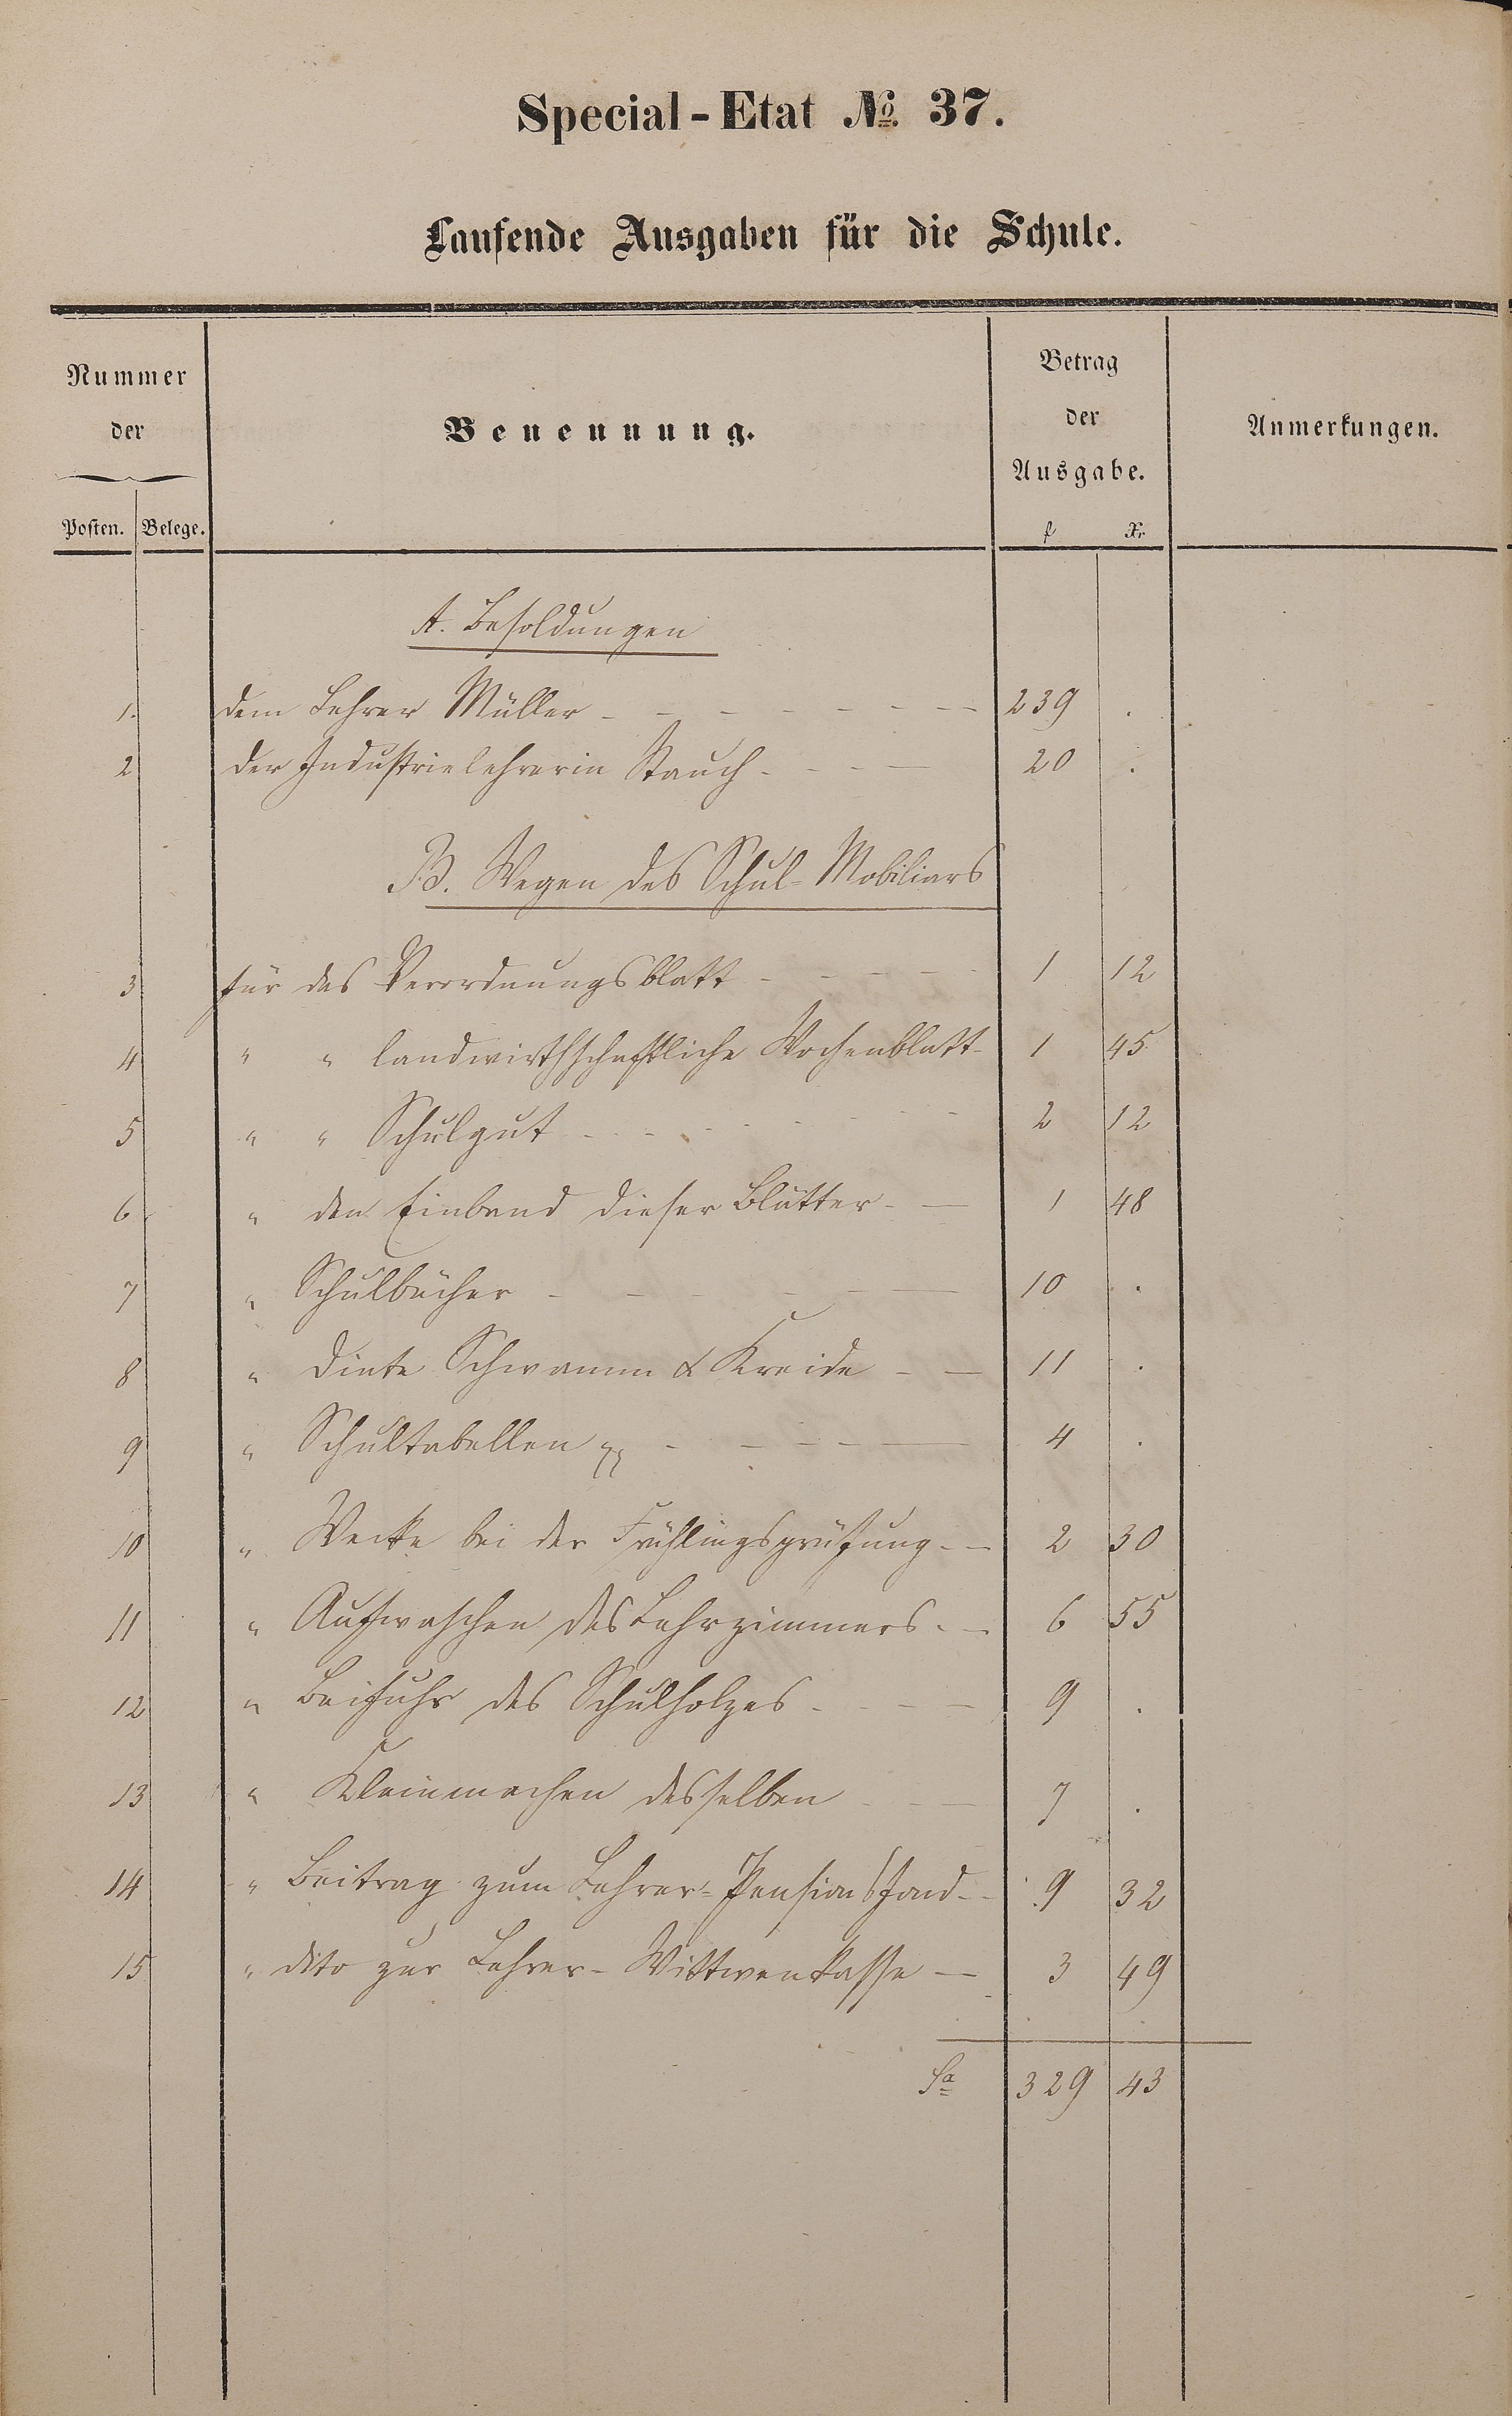 Special-Etat № 37.
Laufende Ausgaben für die Schule.
Nummer
der
Posten. Belege.
Benennung.
Betrag
der
Ausgabe.
f Xr
Anmerkungen.
A. Besoldungen
1. dem Lehrer Müller - - - - - - - - 239 .
2 der Industrielehrerin Stauch - - - - 20 .
B. Wegen des Schul-Mobiliars
3 für das Verordnungsblatt - - - - - 1 12
4 " " landwirthschaftliche Wochenblatt - 1 45
5 " " Schulgut - - - - - - - 2 12
6 " den Einband dieser Blätter - - 1 48
7 " Schulbücher - - - - - - 10 .
8 " Dinte Schwamm & Kreide - - 11 .
9 " Schultabellen - - - - - 4 .
10 " Wecke bei der Frühlingsprüfung - - 2 30
11 " Aufwaschen des Lehrzimmers - - 6 55
12 " Beifuhr des Schulholzes - - - 9 .
13 " Kleinmachen desselben - - - 7 .
14 " Beitrag zum Lehrer-Pensionsfond - - 9 32
15 " dito zur Lehrer-Wittwenkasse - 3 49
Sa 329 43